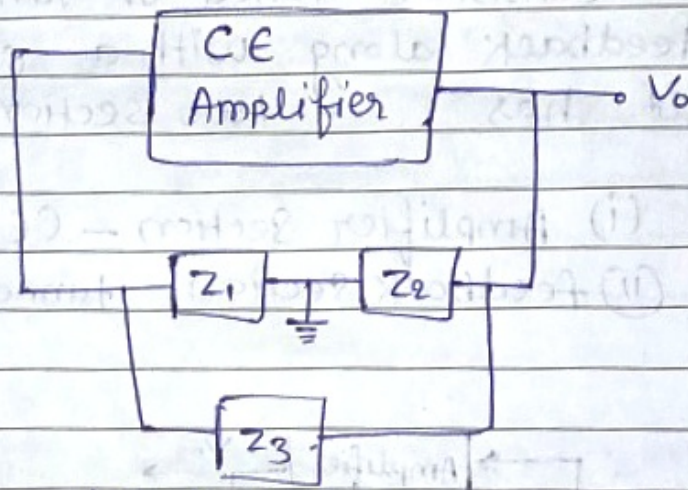 CE
Amplifier
Vo
Z1
Z2
Z3